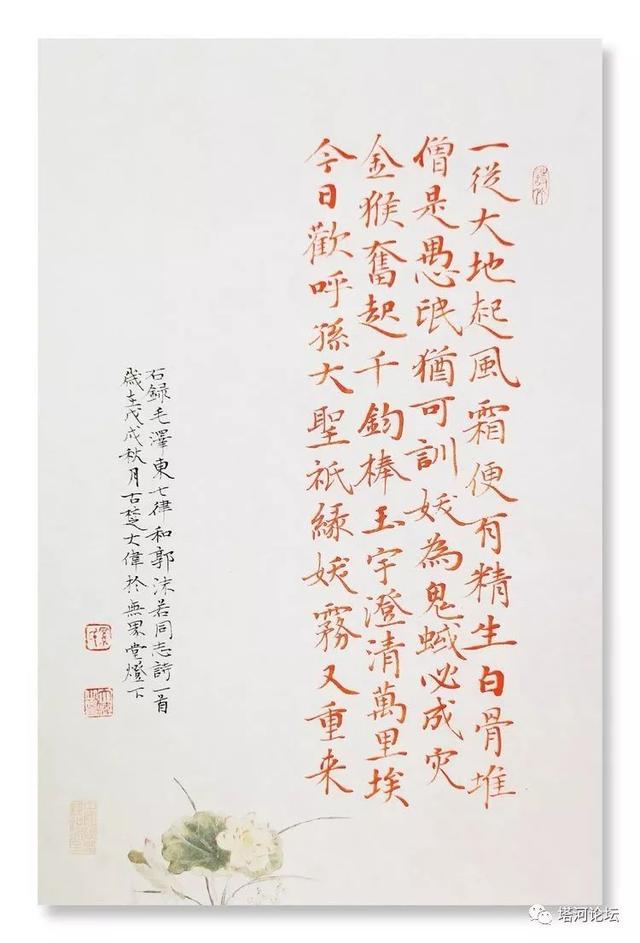 一從大地起風霜便有精生白骨堆
僧是愚氓猶可訓妖為鬼蜮必成灾
金猴奮起千鈞棒玉宇澄清萬里埃
今日歡呼孫大聖祇緣妖霧又重来
右録毛澤東七律和郭沫若同志詩一首
歲在戊戌秋月古楚大偉於無果堂燈下
塔河论坛